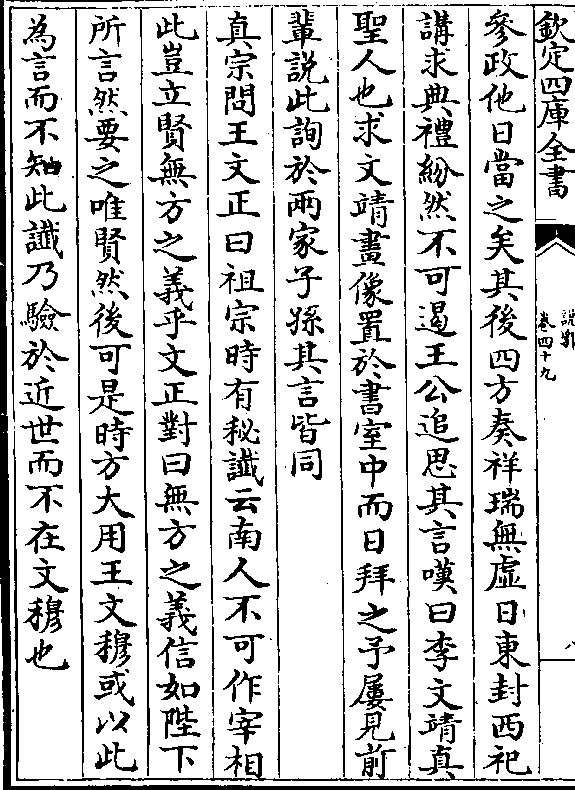 欽定四庫全書
說郛
卷四十九
八
參政他日當之矣其後四方奏祥瑞無虛日東封西祀
講求典禮紛然不可遏王公追思其言嘆曰李文靖真
聖人也求文靖畫像置於書室中而日拜之予屢見前
輩說此詢於兩家子孫其言皆同
真宗問王文正曰祖宗時有秘讖云南人不可作宰相
此豈立賢無方之義乎文正對曰無方之義信如陛下
所言然要之唯賢然後可是時方大用王文穆或以此
為言而不知此讖乃驗於近世而不在文穆也